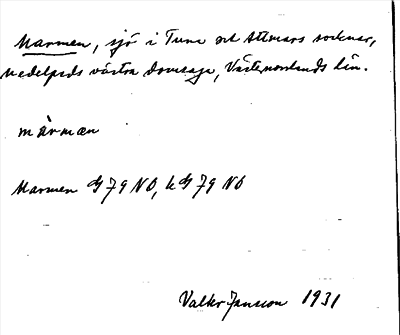 Marmen, sjö i Tuna och Attmars socknar,
Medelpads västra domsaga, Västernorrlands län.
màrmæn
Marmen G 79 NO, k G 79 NO
Valter Jansson 1931